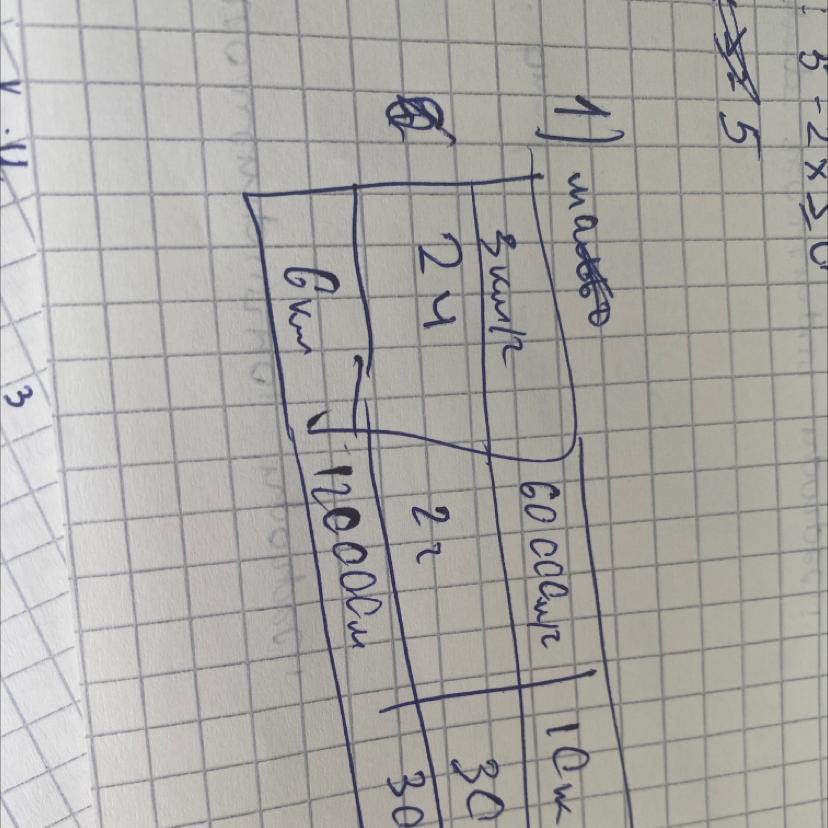 5 - 2x ≥ 0
5
1)
3км/ч 6000см/г 10
2ч 2ч 30
6км 12000см 30
3